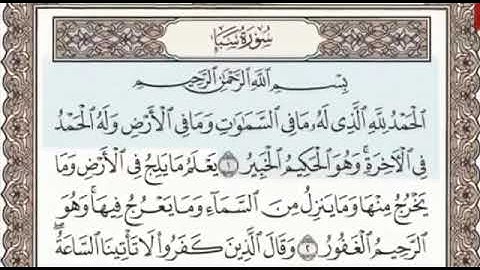 سُورَةُ سَبَإٍ
بِسْمِ ٱللَّهِ ٱلرَّحْمَٰنِ ٱلرَّحِيمِ
ٱلْحَمْدُ لِلَّهِ ٱلَّذِى لَهُۥ مَا فِى ٱلسَّمَٰوَٰتِ وَمَا فِى ٱلْأَرْضِ وَلَهُ ٱلْحَمْدُ
فِى ٱلْءَاخِرَةِ ۚ وَهُوَ ٱلْحَكِيمُ ٱلْخَبِيرُ ١ يَعْلَمُ مَا يَلِجُ فِى ٱلْأَرْضِ وَمَا
يَخْرُجُ مِنْهَا وَمَا يَنزِلُ مِنَ ٱلسَّمَآءِ وَمَا يَعْرُجُ فِيهَا ۚ وَهُوَ
ٱلرَّحِيمُ ٱلْغَفُورُ ٢ وَقَالَ ٱلَّذِينَ كَفَرُوا۟ لَا تَأْتِينَا ٱلسَّاعَةُ ۖ